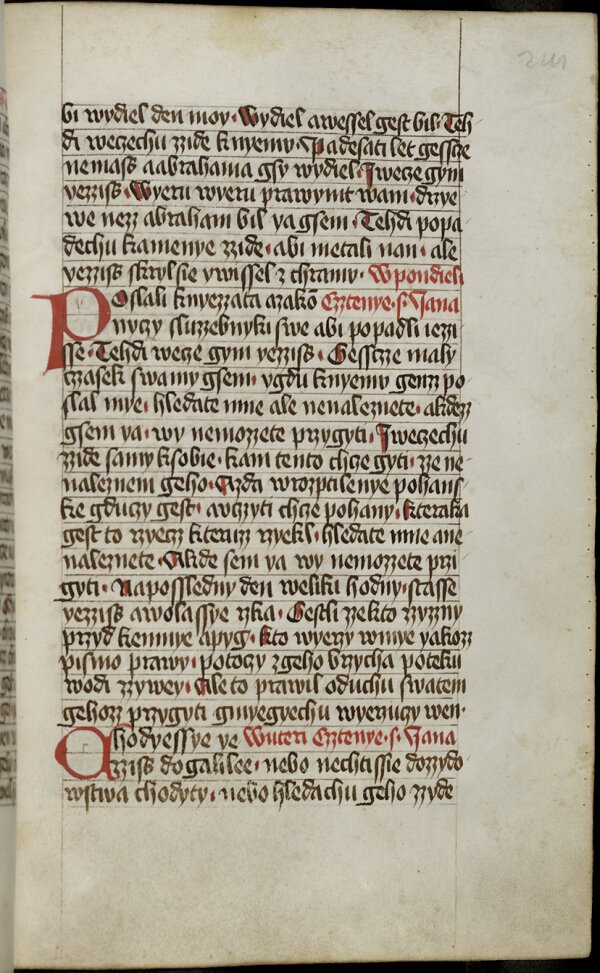 211
bi wydiel den moy. Wydiel awessel gest bil. Teh
di weczechu zzide knyemy. Padesati let gessczie
nemass aabrahama gsy wydiel. Jwecze gym
yezziss. Wyeru wyeru prawymt wam. drzye
we nezz abraham bil ya gsem. Tehdi popa
dechu kamenye zzide. abi metali nan. ale
yezziss skryl sie ywissel z chramu. Wpondieli
Poslali knyezzata azakō Cztenye. s. Jana
nyczy sluzzebnyki swe abi popadli iezzi
sse. Tehdi wecze gym yezziss. Gesstcze maly
czasek swamy gsem. ygdu knyemy genzz po
slal mye. hledate mne ale nenaleznete. akdezz
gsem ya. wy nemozzete przygyti. Jweczechu
zzide samy ksobie. kam tento chcze gyti. zze ne
naleznem geho. Azda wrozptilenye pohans
ke gduczy gest. awczyti chcze pohany. kteraka
gest to rzyecz kteruz rzyekl. hledate mne ane
naleznete. Akde sem ya wy nemozzete przi
gyti. Naposledny den weliku hodny. stasse
yezziss awolassye rzka. Gestli zzekto zzyzny
przyd kemnye apyg. kto wyerzy wmye yakozz
pismo prawy. potoczy zgeho brzycha poteku
wodi zzywey. Ale to prawil oduchu swatem
gehozz przygyti gmyegyechu wyerzuczy wen.
Chodyessye ye Wuteri Cztenye. s. Jana
zziss dogalilee. nebo nechtissie dozzydo
wstwa chodyty. nebo hledachu geho zzyde